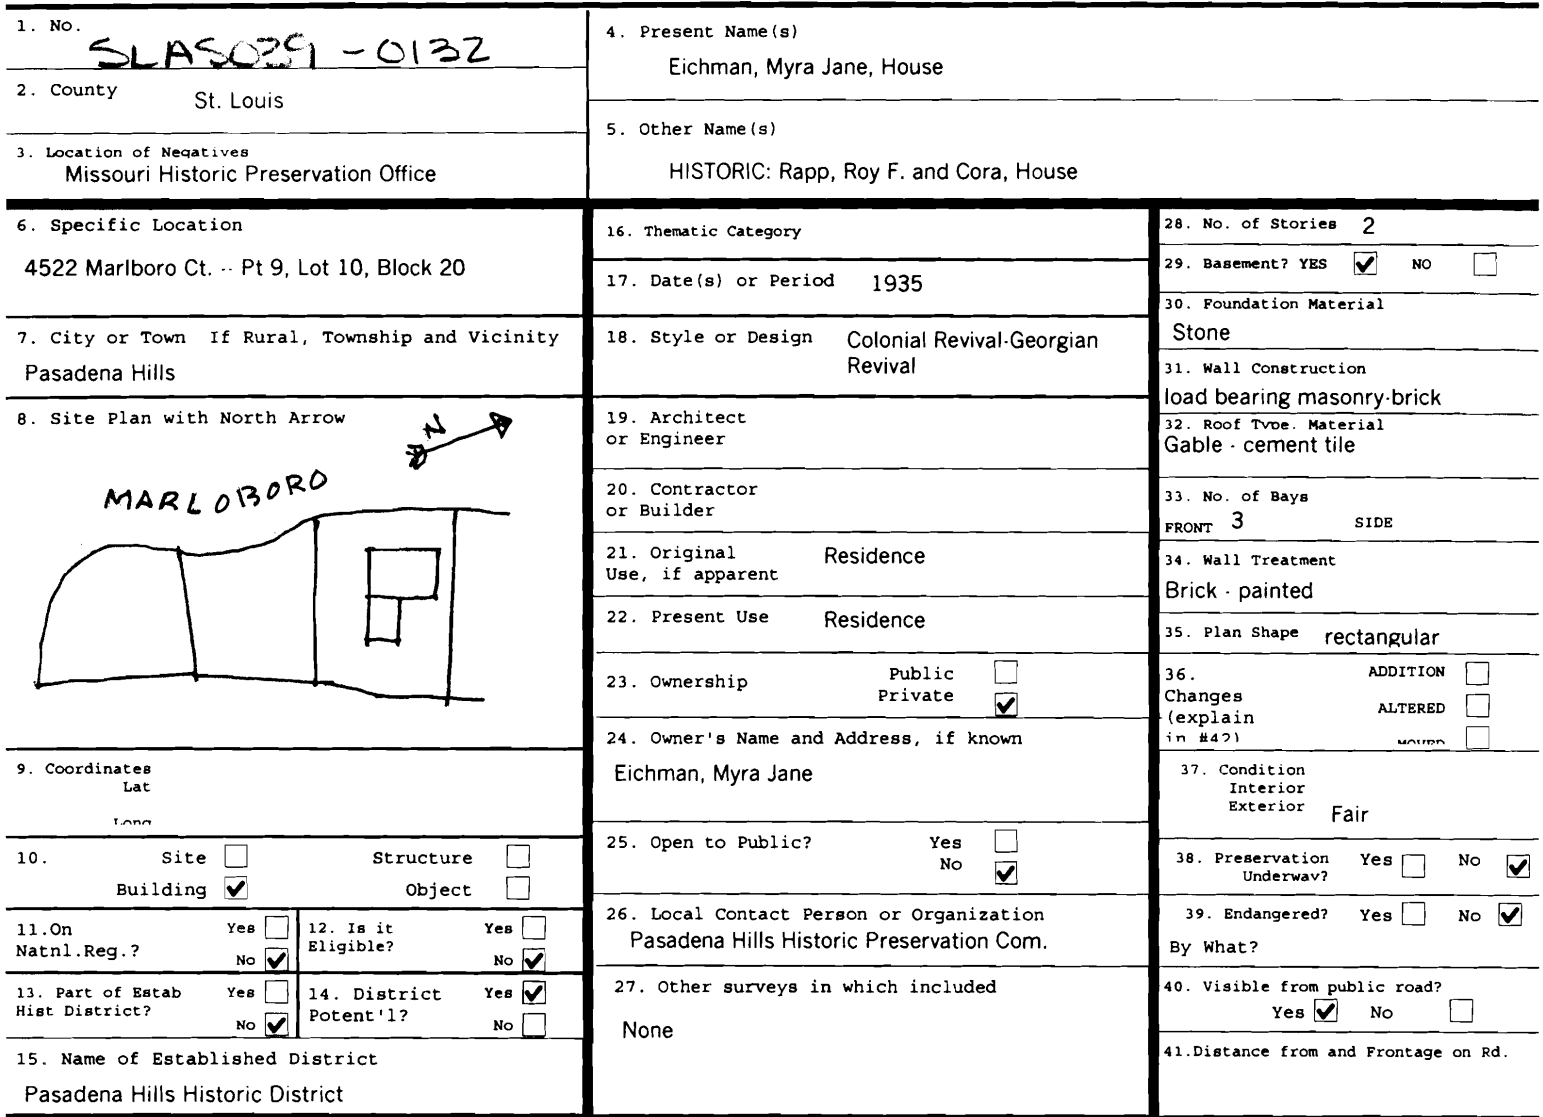 1. No.
SLAS029 - 0132
2. County
St. Louis
3. Location of Negatives
Missouri Historic Preservation Office
4. Present Name(s)
Eichman, Myra Jane, House
5. Other Name(s)
HISTORIC: Rapp, Roy F. and Cora, House
6. Specific Location
4522 Marlboro Ct. -- Pt 9, Lot 10, Block 20
7. City or Town If Rural, Township and Vicinity
Pasadena Hills
8. Site Plan with North Arrow
N
MARLOBORO
9. Coordinates
Lat
Long
10. Site Structure
Building ✔ Object
11.On Yes
Natnl.Reg.? No ✔
12. Is it Yes
Eligible? No ✔
13. Part of Estab Yes
Hist District? No ✔
14. District Yes ✔
Potent'l? No
15. Name of Established District
Pasadena Hills Historic District
16. Thematic Category
17. Date(s) or Period 1935
18. Style or Design Colonial Revival-Georgian
Revival
19. Architect
or Engineer
20. Contractor
or Builder
21. Original Residence
Use, if apparent
22. Present Use Residence
23. Ownership Public
Private ✔
24. Owner's Name and Address, if known
Eichman, Myra Jane
25. Open to Public? Yes
No ✔
26. Local Contact Person or Organization
Pasadena Hills Historic Preservation Com.
27. Other surveys in which included
None
28. No. of Stories 2
29. Basement? YES ✔ NO
30. Foundation Material
Stone
31. Wall Construction
load bearing masonry-brick
32. Roof Type. Material
Gable - cement tile
33. No. of Bays
FRONT 3 SIDE
34. Wall Treatment
Brick - painted
35. Plan Shape rectangular
36. ADDITION
Changes
(explain ALTERED
in #42) MOVED
37. Condition
Interior
Exterior Fair
38. Preservation Yes No ✔
Underway?
39. Endangered? Yes No ✔
By What?
40. Visible from public road?
Yes ✔ No
41.Distance from and Frontage on Rd.